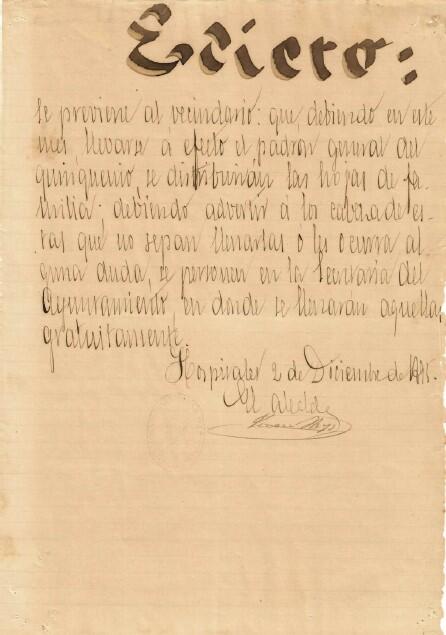 Edicto:
Se previene al vecindario: que, debiendo en este
mes, llevarse á efecto el padron general del
quinquenio, se distribuirán las hojas de fa-
milia; debiendo advertir á los cabezas de es-
tas que no sepan llenarlas ó les ocurra al
guna duda, se personen en la Secretaria del
Ayuntamiento, en donde se llenarán aquellas
gratuitamente.
Hospitalet 2 de Diciembre de
El Alcalde